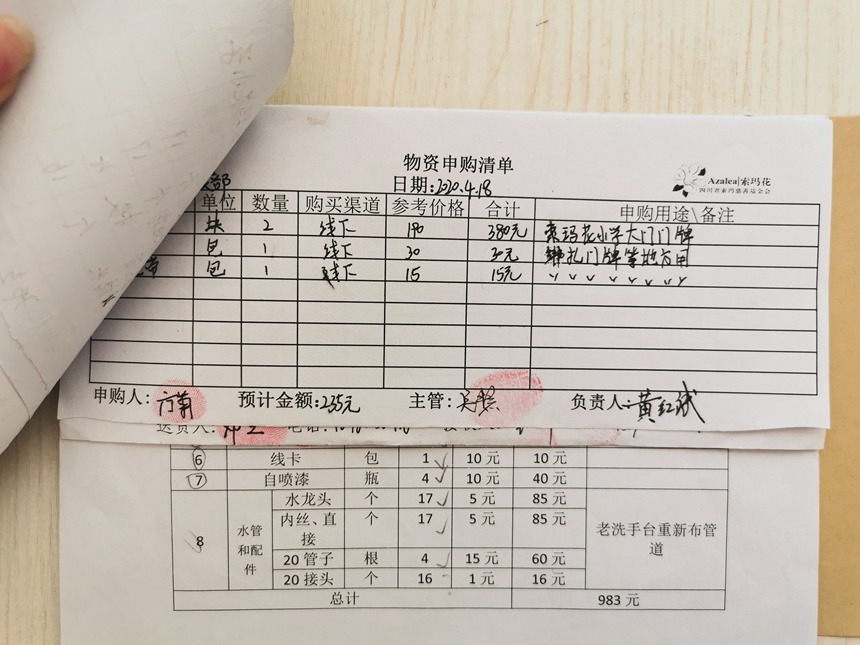 物资申购清单
Azalea|索玛花
四川省索玛慈善基金会
部 日期:2020.4.18
单位 数量 购买渠道 参考价格 合计 申购用途\备注
块 2 线下 190 380元 索玛花小学大门门牌
包 1 线下 30 30元 绑扎门牌等地方用
包 1 线下 15 15元 〃 〃 〃 〃 〃 〃
申购人: 预计金额:235元 主管: 负责人:黄红斌
送货人: 电话:
6 线卡 包 1 10 元 10 元
7 自喷漆 瓶 4 10 元 40 元
8 水管和配件 水龙头 个 17 5 元 85 元 老洗手台重新布管道
内丝、直接 个 17 5 元 85 元
20 管子 根 4 15 元 60 元
20 接头 个 16 1 元 16 元
总计 983 元